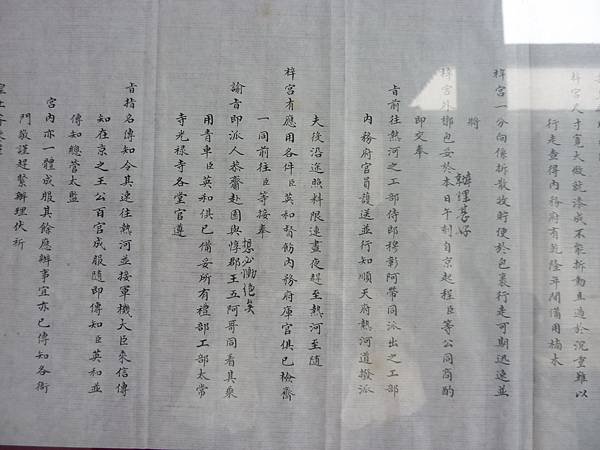 梓宮人才寬大做就漆成不象拆動且過於沉重難以
行走查得內務府有乾隆年間備用楠木
梓宮一分向係拆散收貯便於包裹行走可期迅速並
將
梓宮外槨包妥於本日午刻自京起程臣等公同商酌
辦理甚好
即交奉
旨前往熱河之工部侍郎穆彰阿帶同派出之工部
內務府官員護送並行知順天府熱河道撥派
夫役沿途照料限連晝夜趕至熱河至隨
梓宮有應用各件臣英和督飭內務府庫官俱已檢齊
一同前往臣等接奉
諭旨即派人恭齎赴園與惇郡王五阿哥同看其乘
想必慟絕矣
用青車臣英和俱已備妥所有禮部工部太常
寺光祿寺各堂官遵
旨指名傳知令其速往熱河並接軍機大臣來信傳
知在京之王公百官成服隨即傳知臣英和並
傳知總管太監
宮內亦一體成服其餘應辦事宜亦已傳知各衙
門敬謹趕緊辦理伏祈